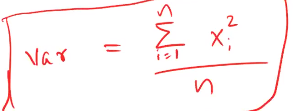 var = \frac{\sum_{i=1}^{n} x_i^2}{n}